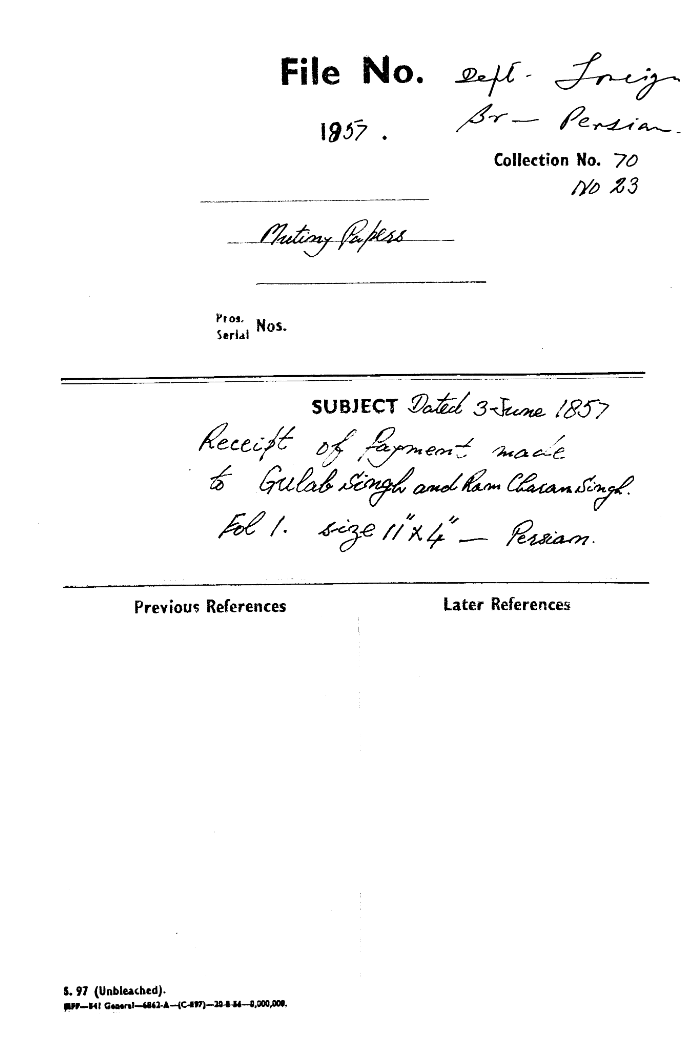 File No. Dept - Foreign
1957 . Br — Persian.
Collection No. 70
No 23
Mutiny Papers
Pros.
Serial Nos.
SUBJECT Dated 3-June 1857
Receipt of Payment made
to Gulab Singh and Ram Charan Singh.
Fol 1. size 11"x4" — Persian.
Previous References
Later References
S. 97 (Unbleached).
General—6862-A—(C-897)—20-8-56—8,000,000.